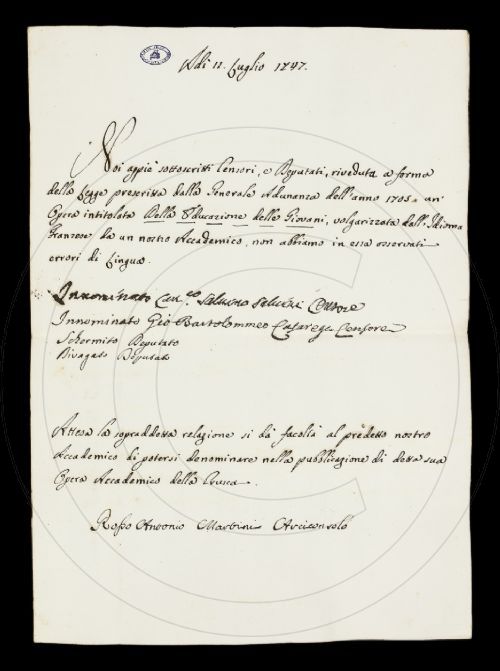 Adi 11. Luglio 1747.
Noi appiè sottoscritti Censori, e Deputati, riveduta a forma
della Legge prescritta dalla Generale Adunanza dell'anno 1705. un'
Opera intitolata Della Educazione delle Giovani, volgarizzata dall'Idioma
Franzese da un nostro Accademico, non abbiamo in essa osservati
errori di Lingua.
Innominato Cav. Salvino Salvini Censore
Innominato Gio Bartolommeo Casaregi Censore
Schermito Deputato
Rivagato Deputato
Attesa la sopraddetta relazione si dà facoltà al predetto nostro
Accademico di potersi denominare nella pubblicazione di detta sua
Opera Accademico della Crusca.
Rosso Antonio Martini Arciconsolo